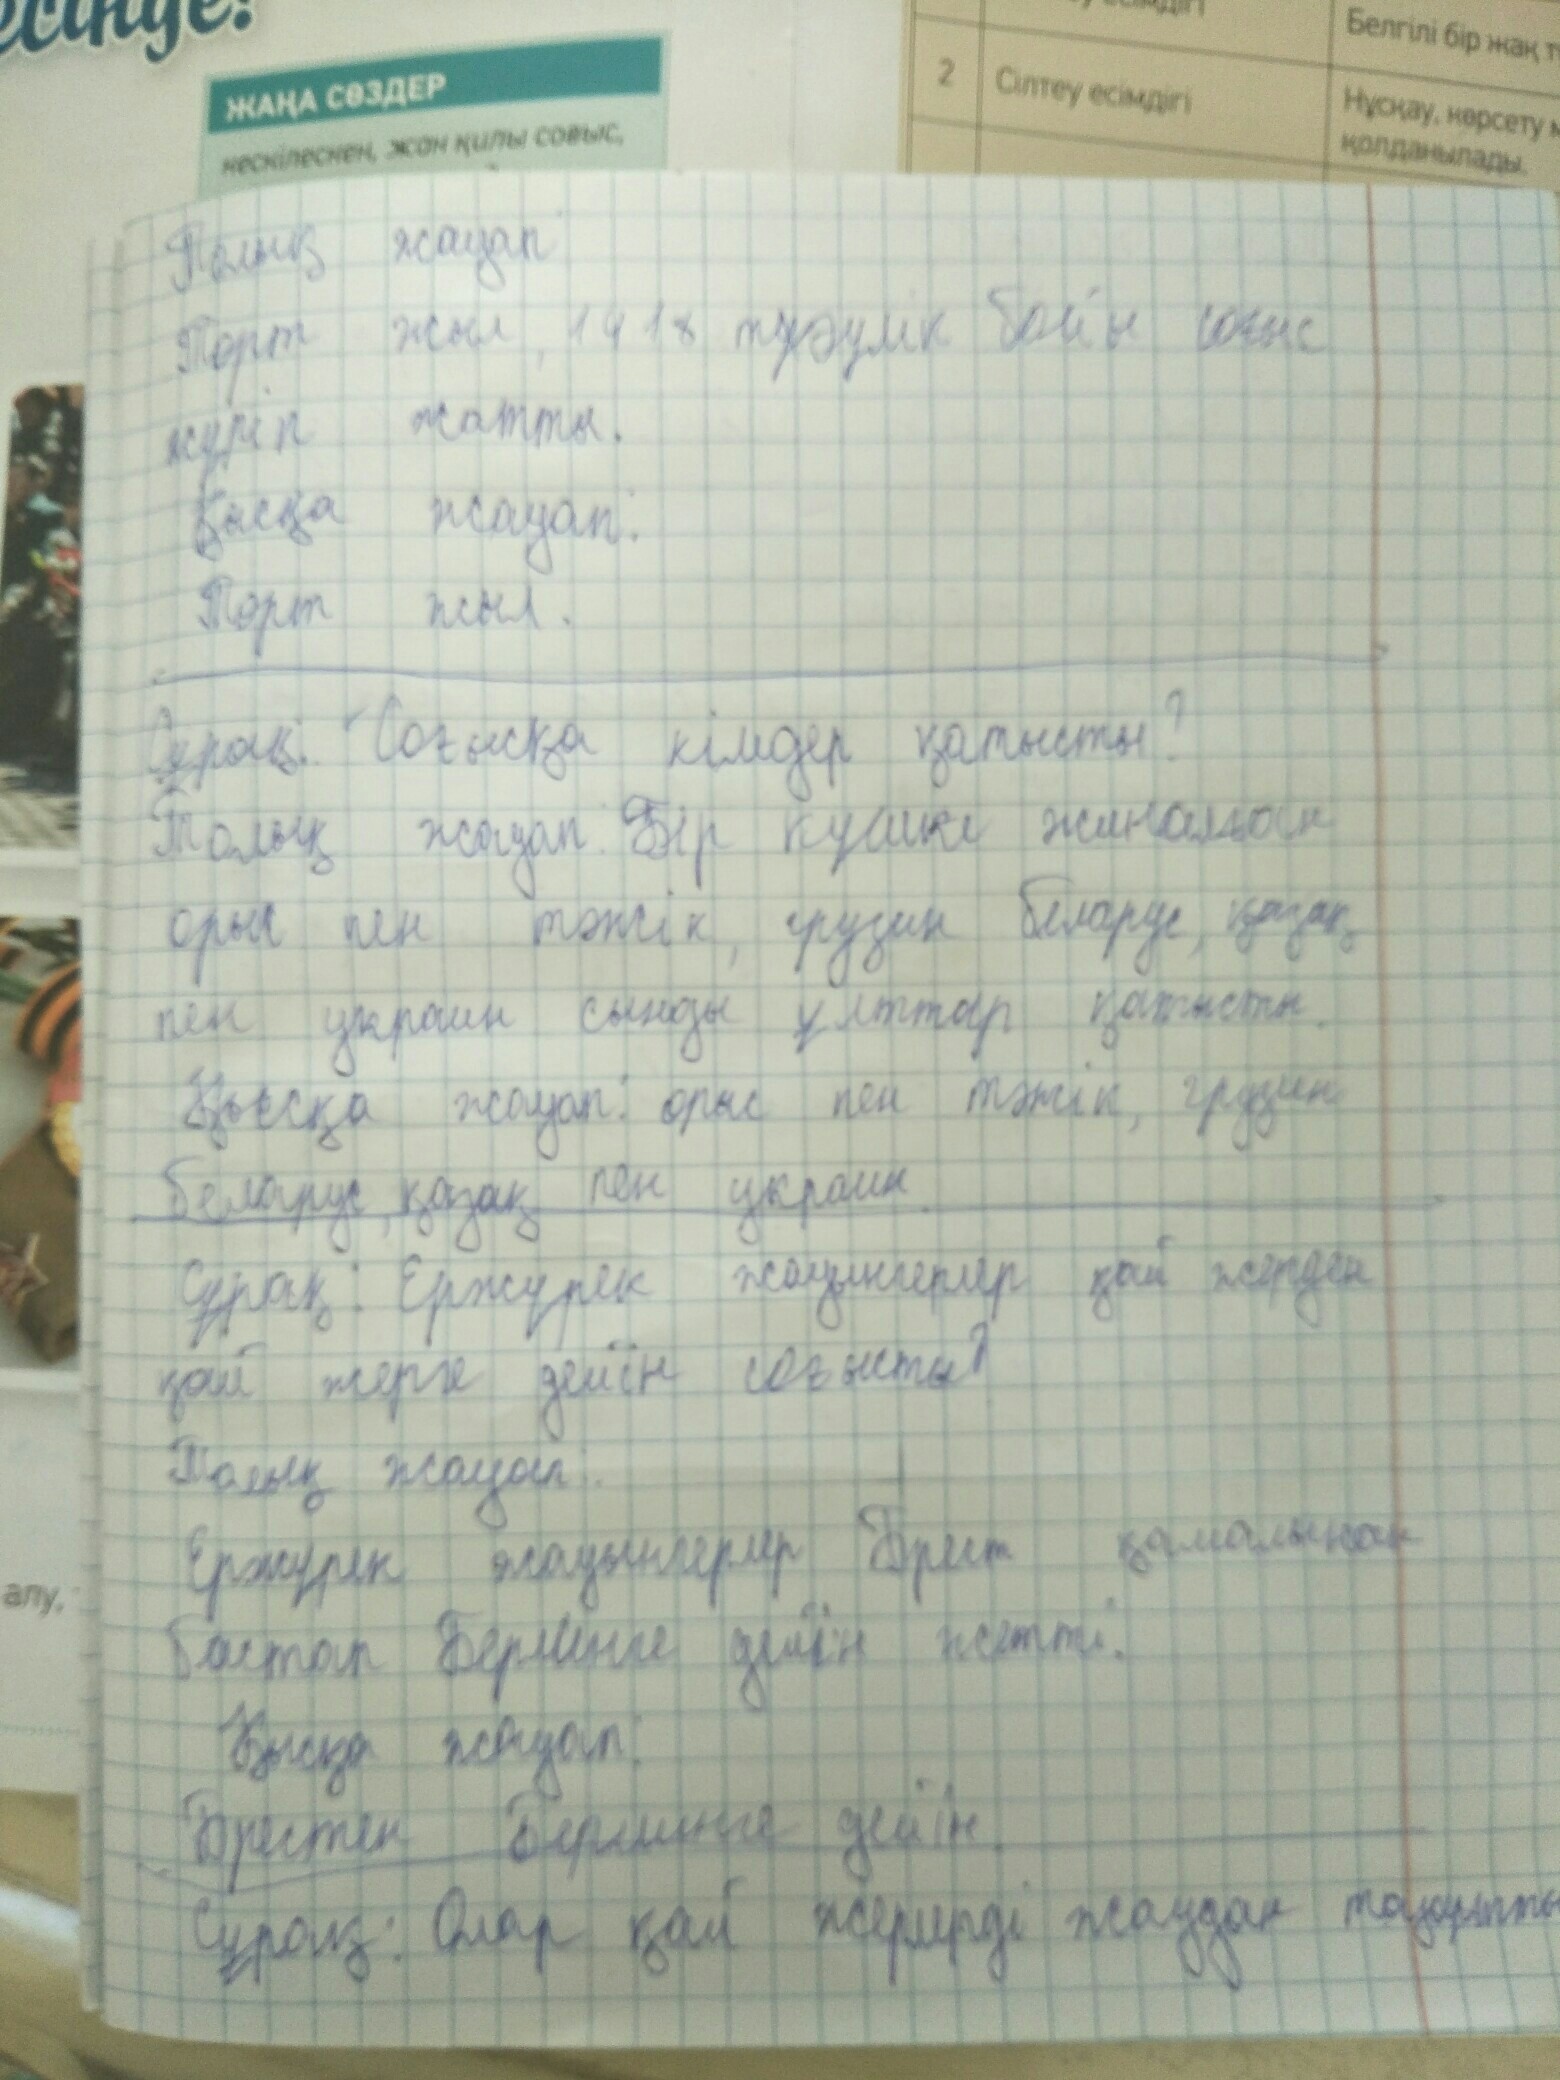 есінде!
ЖАҢА СӨЗДЕР
кескілескен, жан қилы соғыс,
есімдігі
Белгілі бір жақ
2 Сілтеу есімдігі
Нұсқау, көрсету
қолданылады.
алу,
Толық жауап
Төрт жыл, 1418 тәулік бойы соғыс
жүріп жатты.
Қысқа жауап:
Төрт жыл.
Сұрақ: Соғысқа кімдер қатысты?
Толық жауап: Бір күшке жиналған
орыс пен тәжік, грузин беларус, қазақ
пен украин сынды ұлттар қатысты.
Қысқа жауап: орыс пен тәжік, грузин
беларус, қазақ пен украин.
Сұрақ: Ержүрек жауынгерлер қай жерден
қай жерге дейін соғысты?
Толық жауап:
Ержүрек жауынгерлер Брест қамалынан
бастап Берлинге дейін жетті.
Қысқа жауап:
Брестен Берлинге дейін.
Сұрақ: Олар қай жерлерді жаудан